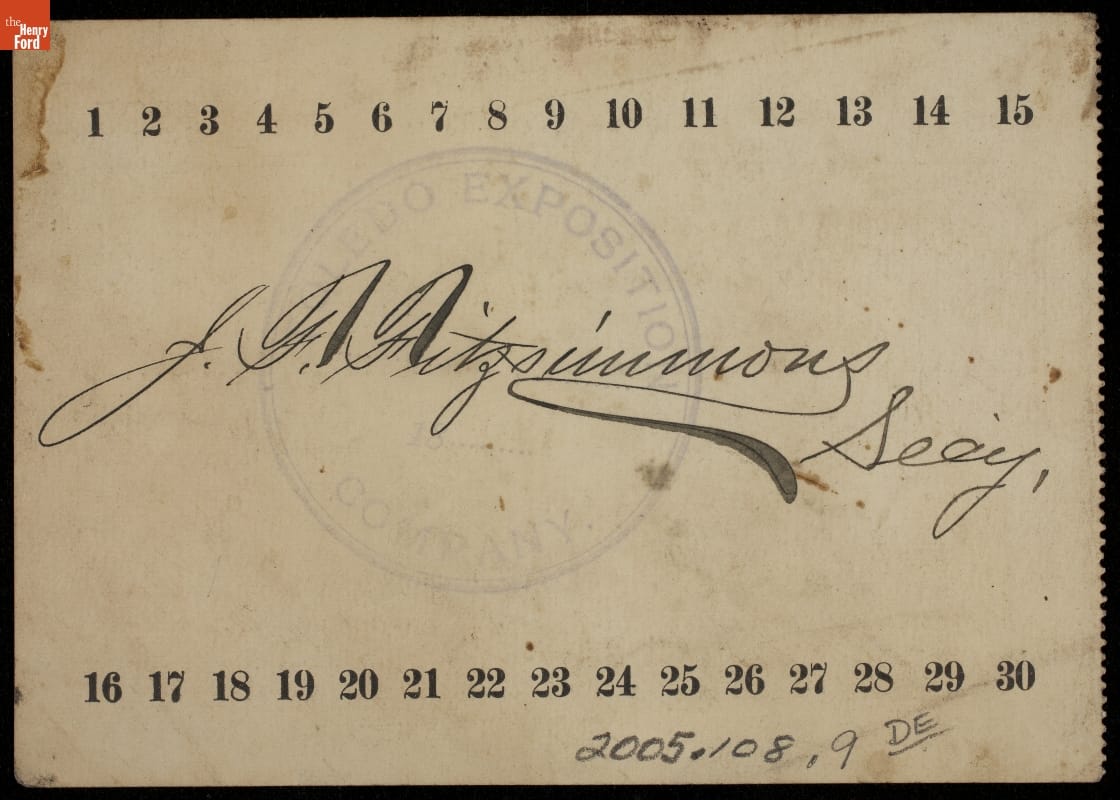 the
Henry
Ford
1 2 3 4 5 6 7 8 9 10 11 12 13 14 15
LEDO EXPOSITION
J. F. Fitzsimmons
18
Secy,
COMPANY.
16 17 18 19 20 21 22 23 24 25 26 27 28 29 30
2005.108.9 DE